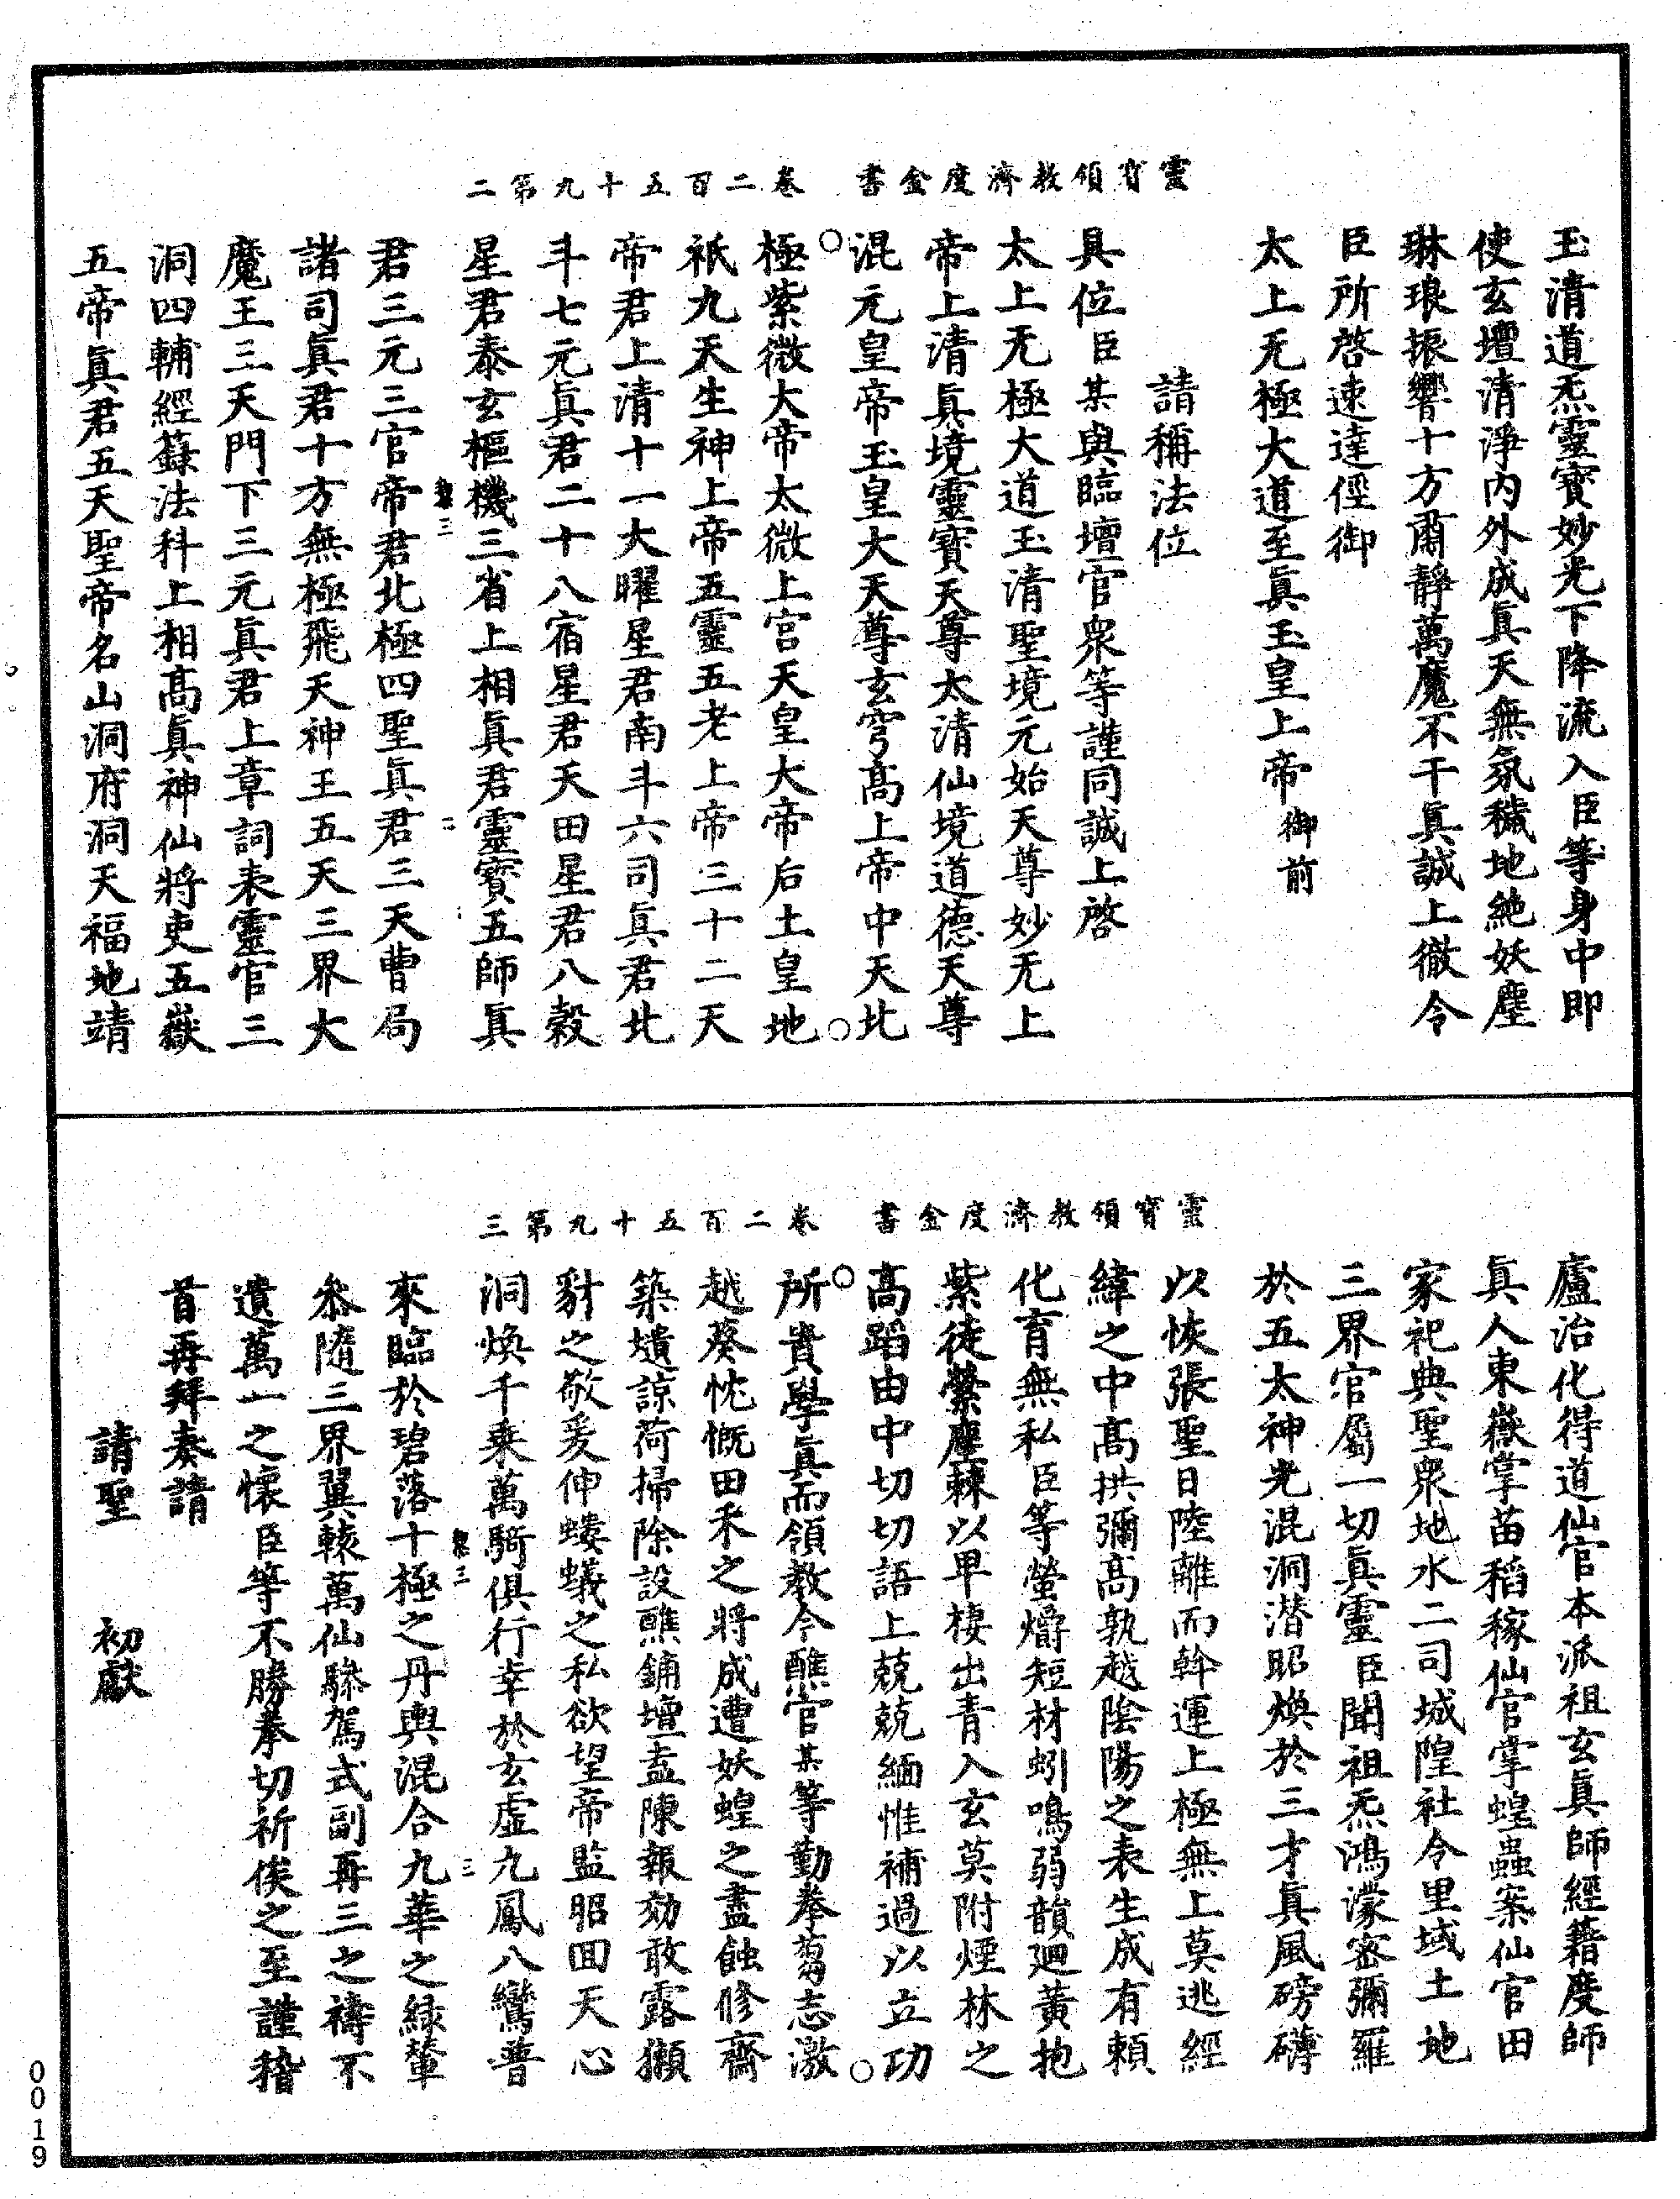 靈寶領教濟度金書 卷二百五十九第二
玉清道炁靈寶妙光下降流入臣等身中即
使玄壇清淨內外成真天無氛穢地絕妖塵
琳琅振響十方肅靜萬魔不干真誠上徹令
臣所啓速達徑御
太上无極大道至真玉皇上帝御前
請稱法位
具位臣某與臨壇官衆等謹同誠上啓
太上无極大道玉清聖境元始天尊妙无上
帝上清真境靈寶天尊太清仙境道德天尊
混元皇帝玉皇大天尊玄穹高上帝中天北
極紫微大帝太微上宮天皇大帝后土皇地
祇九天生神上帝五靈五老上帝三十二天
帝君上清十一大曜星君南斗六司真君北
斗七元真君二十八宿星君天田星君八穀
星君泰玄樞機三省上相真君靈寶五師真
君三元三官帝君北極四聖真君三天曹局
諸司真君十方無極飛天神王五天三界大
魔王三天門下三元真君上章詞表靈官三
洞四輔經籙法科上相高真神仙將吏五嶽
五帝真君五天聖帝名山洞府洞天福地靖
靈寶領教濟度金書 卷二百五十九第三
廬治化得道仙官本派祖玄真師經籍度師
真人東嶽掌苗稻稼仙官掌蝗蟲案仙官田
家祀典聖衆地水二司城隍社令里域土地
三界官屬一切真靈臣聞祖炁鴻濛密彌羅
於五太神光混洞潛昭煥於三才真風磅礴
以恢張聖日陸離而斡運上極無上莫逃經
緯之中高拱彌高孰越陰陽之表生成有賴
化育無私臣等螢爝短材蚓鳴弱韻廻黃抱
紫徒縈塵棘以卑棲出青入玄莫附煙林之
高蹈由中切切語上兢兢緬惟補過以立功
所貴學真而領教今醮官某等勤拳芻志激
越葵忱慨田禾之將成遭妖蝗之盡蝕修齋
築壝諒荷掃除設醮鋪壇盍陳報効敢露獺
豺之敬爰伸螻蟻之私欲望帝監昭回天心
洞煥千乘萬騎俱行幸於玄虛九鳳八鸞普
來臨於碧落十極之丹輿混合九華之綠輦
叅隨三界翼轅萬仙驂駕式副再三之禱不
遺萬一之懷臣等不勝拳切祈俟之至謹稽
首再拜奏請
請聖 初獻
0019